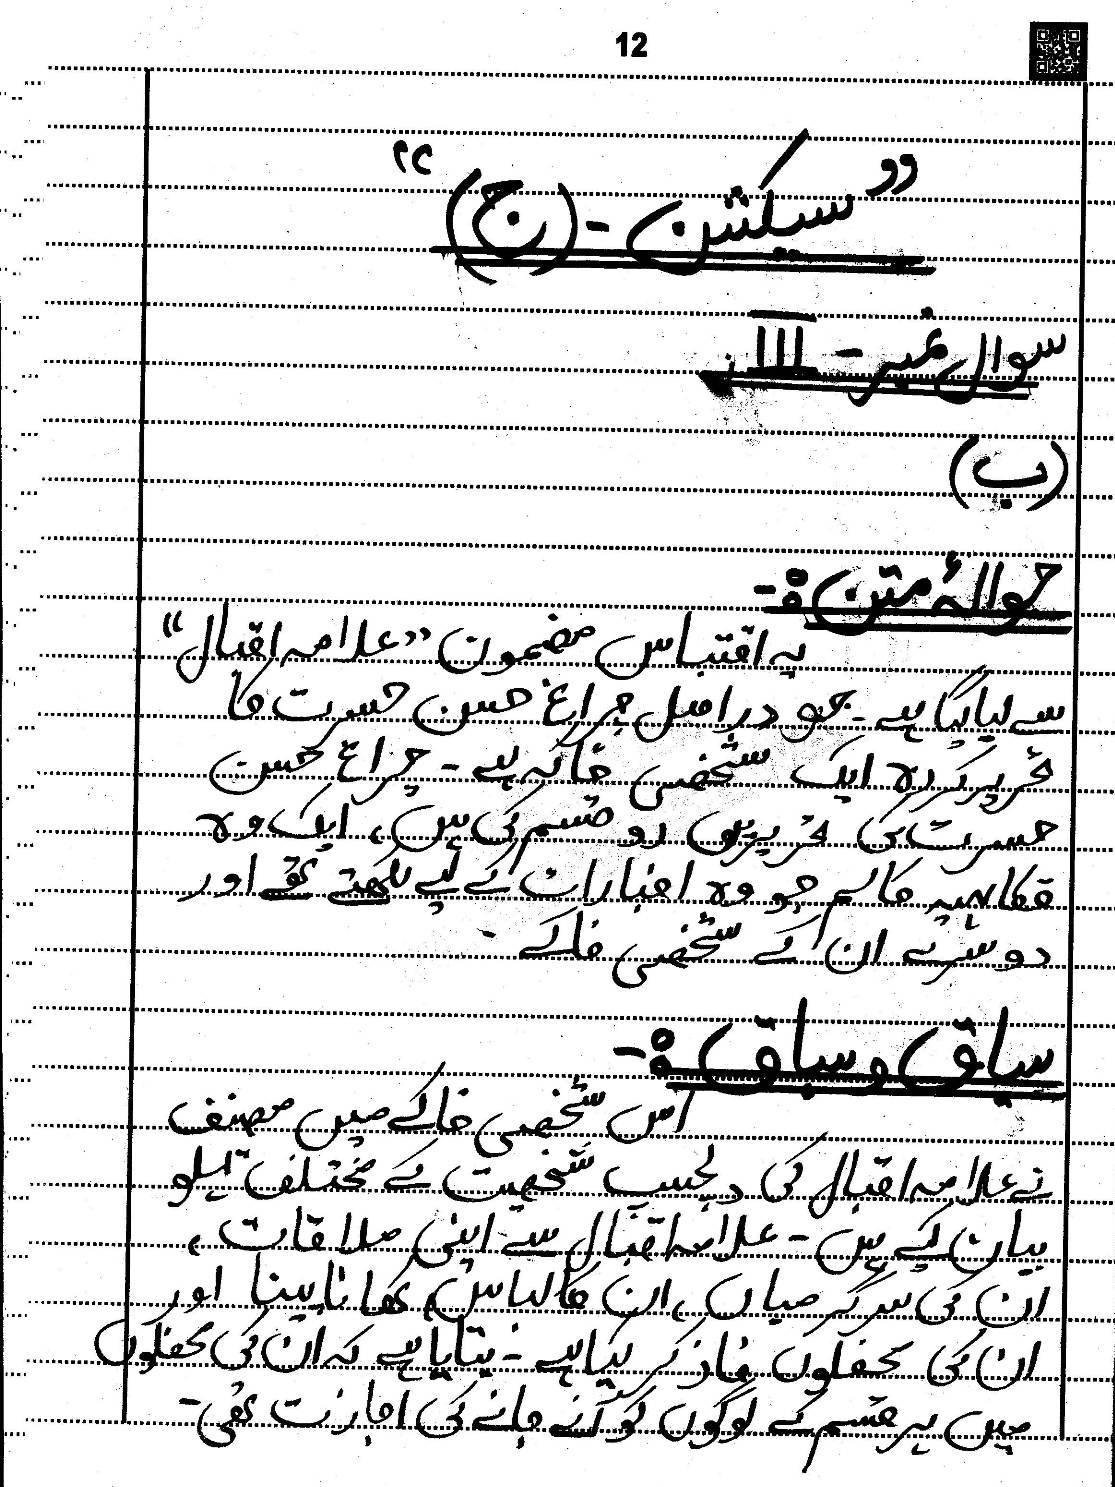 12
”سیکشن - (ج)“
سوال نمبر - III
(ب)
حوالۂ متن :-
یہ اقتباس مضمون ”علامہ اقبال“
سے لیا گیا ہے - جو دراصل چراغ حسن حسرت کا
تحریر کردہ ایک شخصی خاکہ ہے - چراغ حسن
حسرت کی تحریریں دو قسم کی ہیں، ایک وہ
فکاہیہ کالم جو وہ اخبارات کے لیے لکھتے تھے اور
دوسرے ان کے شخصی خاکے -
سیاق و سباق :-
اس شخصی خاکے میں مصنف
نے علامہ اقبال کی دلچسپ شخصیت کے مختلف پہلو
بیان کیے ہیں - علامہ اقبال سے اپنی ملاقات،
ان کی سرگرمیاں، ان کا لباس، کھانا پینا اور
ان کی محفلوں کا ذکر کیا ہے - بتایا ہے کہ ان کی محفلوں
میں ہر قسم کے لوگوں کو آنے جانے کی اجازت تھی -